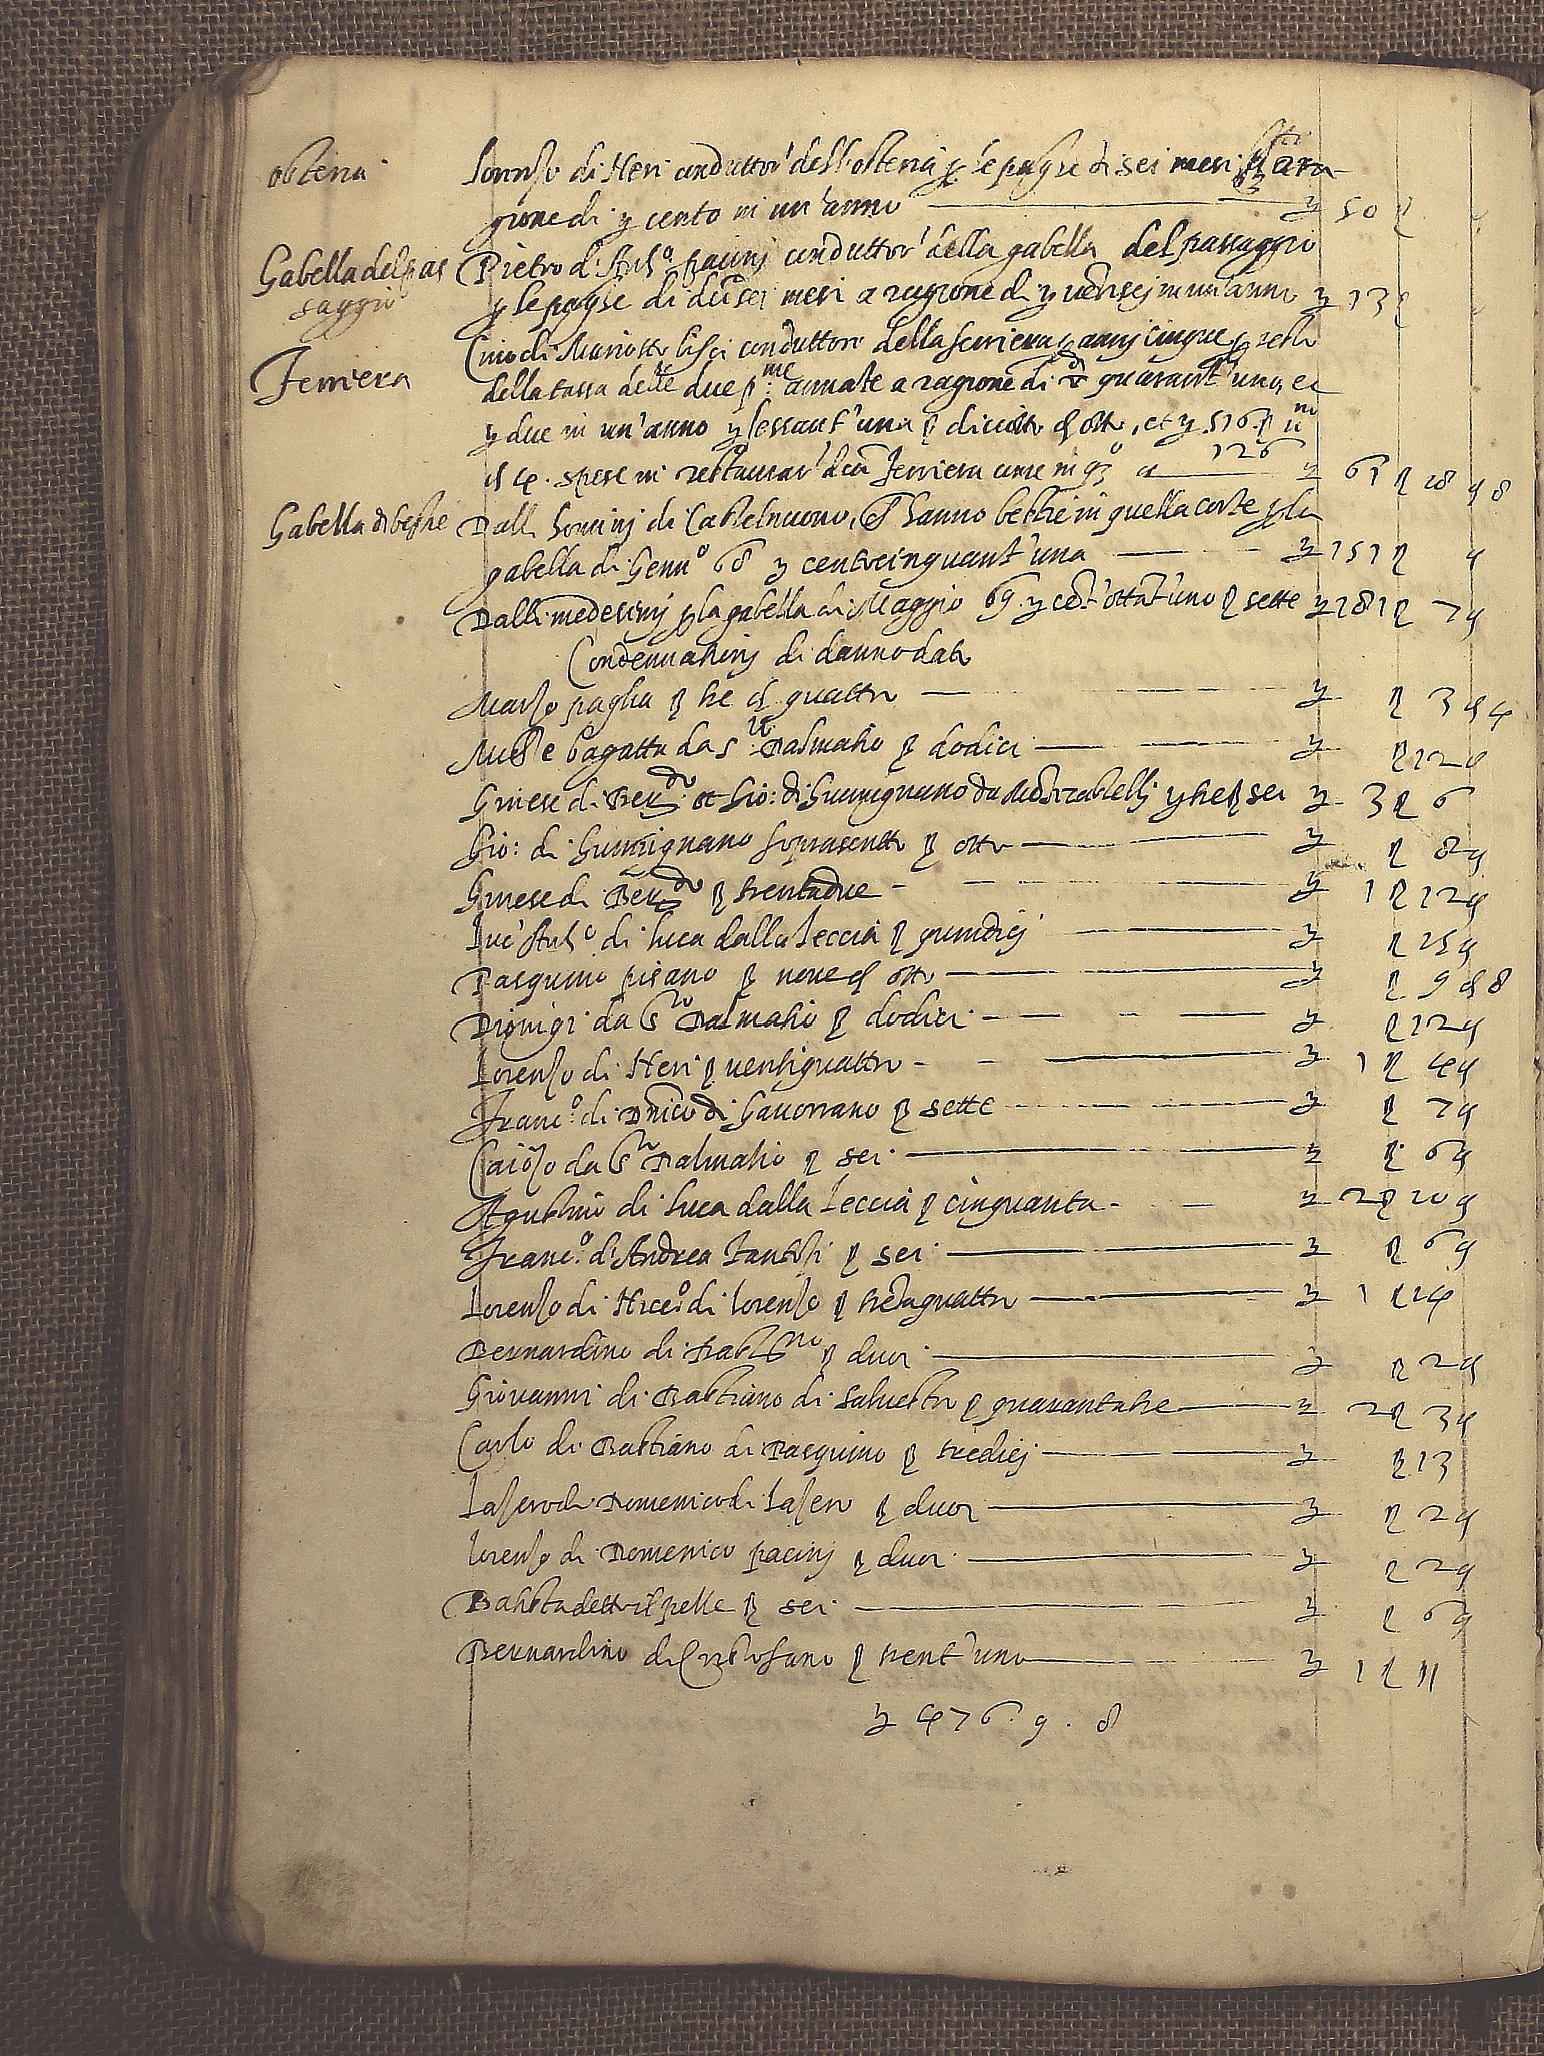 osteria
Lorenzo di Neri conduttor' dell'osteria p le paghe di sei mesi a ra
gione di y cento in un'anno y 50 β
Gabella del pas
saggio
Pietro d'Ant.o Pacinj conduttor' della gabella del passaggio
p le paghe di detti sei mesi a ragione di y ventisej in un'anno y 13 β
Ferriera
di Mariotto conduttore della ferriera p annj cinque p resto
della tassa delle due p.me annate a ragione di quarant'uno, et
y due in un'anno y sessant'una β diciotto ₰ otto, et y 516 β
₰ 4 spese in restaurar' dca ferriera come in 126 y 61 β 18 ₰ 8
Gabella di bestie
Dalli hominj di Castelnuovo, hanno bestie in quella corte p la
gabella di Genn.o 68 y centocinquant'una y 151 β ₰
Dalli medesimj p la gabella di Maggio 69 y cent'ottant'uno β sette y 181 β 7 ₰
Condennationj di danno dato
Marzo paglia β tre ₰ quattro y β 3 ₰ 4
bagatta da S. Dalmatio β dodici y β 12 ₰
Ginese di Ber.do et Gio: di Gumignano da y tre β sei y 3 β 6
Gio: di Gumignano soprascritto β otto y β 8 ₰
Ginese di Ber.do β trentadue y 1 β 12 ₰
Luc'Ant.o di Luca dalla Leccia β quindicj y β 15 ₰
Pasquino pisano β nove ₰ otto y β 9 ₰ 8
Dionigi da S.to Dalmatio β dodici y β 12 ₰
Lorenzo di Neri β ventiquattro y 1 β 4 ₰
Franc.o di Dnico di Gavorrano β sette y β 7 ₰
da S.to Dalmatio β sei y β 6 ₰
Agustino di Luca dalla Leccia β cinquanta y 2 β 10 ₰
Franc.o d'Andrea β sei y β 6 ₰
Lorenzo di di Lorenzo β trentaquattro y 1 β 14
Bernardino di β duoi y β 2 ₰
Giovanni di Bastiano di Salvestro β quarantatre y 2 β 3 ₰
Carlo di Bastiano di Pasquino β tredicj y β 13
Lazero di Domenico di Lazero β duoi y β 2 ₰
Lorenzo di Domenico Pacinj β duoi y β 2 ₰
Batista detto il pelle β sei y β 6 ₰
Bernardino di Cristofano β trent'uno y 1 β 11
y 476. 9. 8